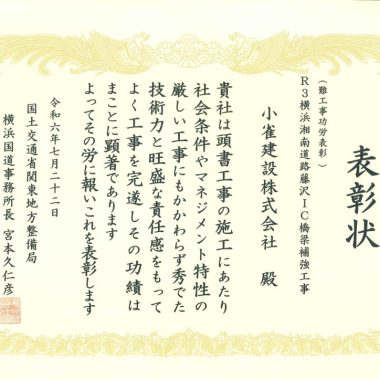 表彰状
(難工事功労表彰)
R3横浜湘南道路藤沢IC橋梁補強工事
小雀建設株式会社 殿
貴社は頭書工事の施工にあたり
社会条件やマネジメント特性の
厳しい工事にもかかわらず秀でた
技術力と旺盛な責任感をもって
よく工事を完遂しその功績は
まことに顕著であります
よってその労に報いこれを表彰します
令和六年七月二十二日
国土交通省関東地方整備局
横浜国道事務所長 宮本久仁彦